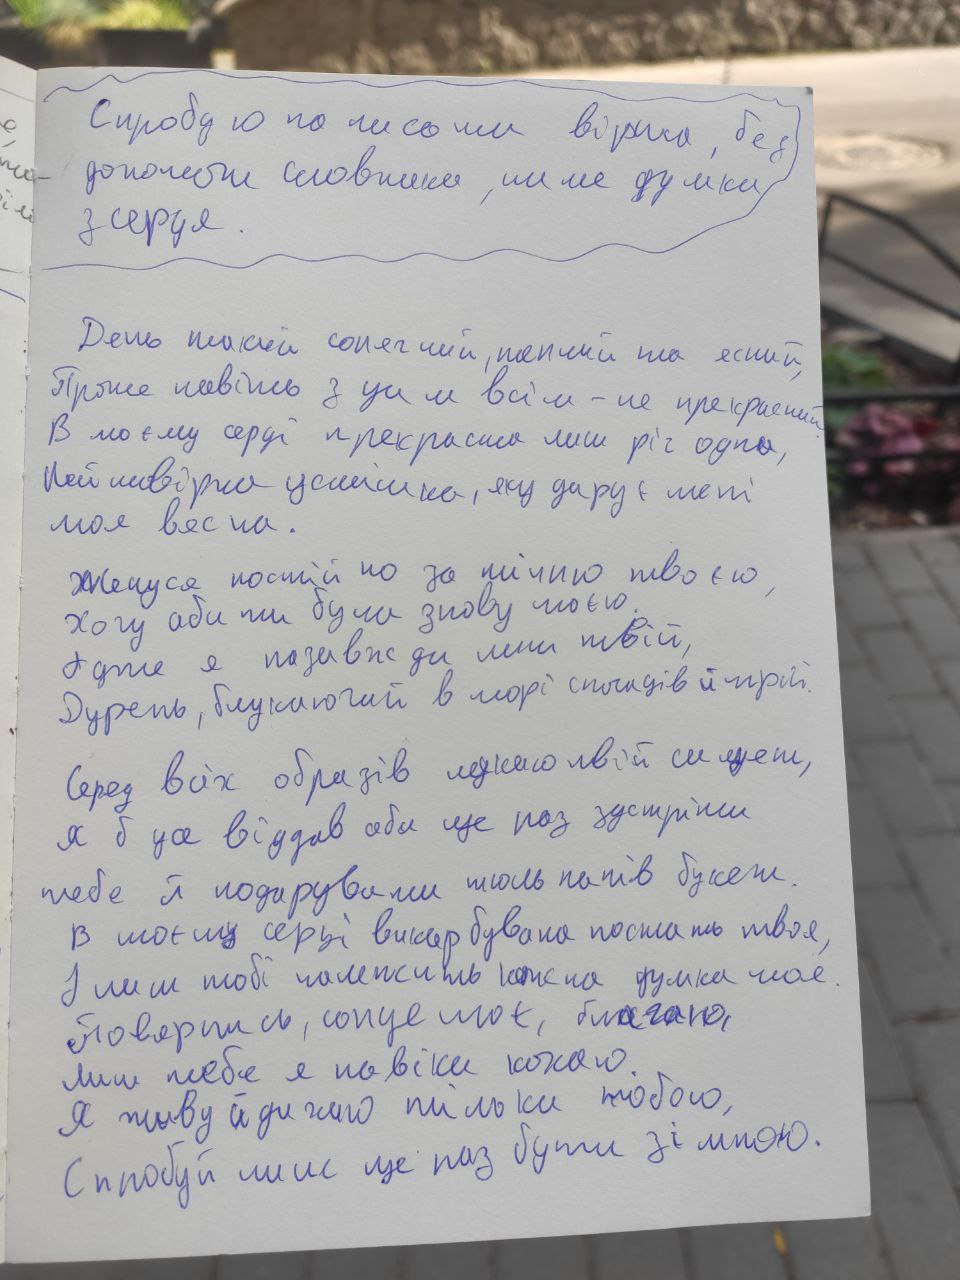 Спробую написати вірша, без
допомоги словника, лише думки
з серця.
День такий сонячний, теплий та ясний,
Проте навіть з цим всім – не прекрасний.
В моєму серці прекрасна лиш річ одна,
Неймовірна усмішка, яку дарує мені
моя весна.
Женуся постійно за тінню твоєю,
Хочу аби ти була знову моєю.
Адже я назавжди лиш твій,
Дурень, блукаючий в морі спогадів й мрій.
Серед всіх образів шукаю твій силует,
Я б усе віддав аби ще раз зустріти
тебе й подарувати тюльпанів букет.
В моєму серці викарбувана постать твоя,
І лиш тобі належить кожна думка моя.
Повернись, сонце моє, благаю,
Лиш тебе я навіки кохаю.
Я живу й дихаю тільки тобою,
Спробуй лиш ще раз бути зі мною.